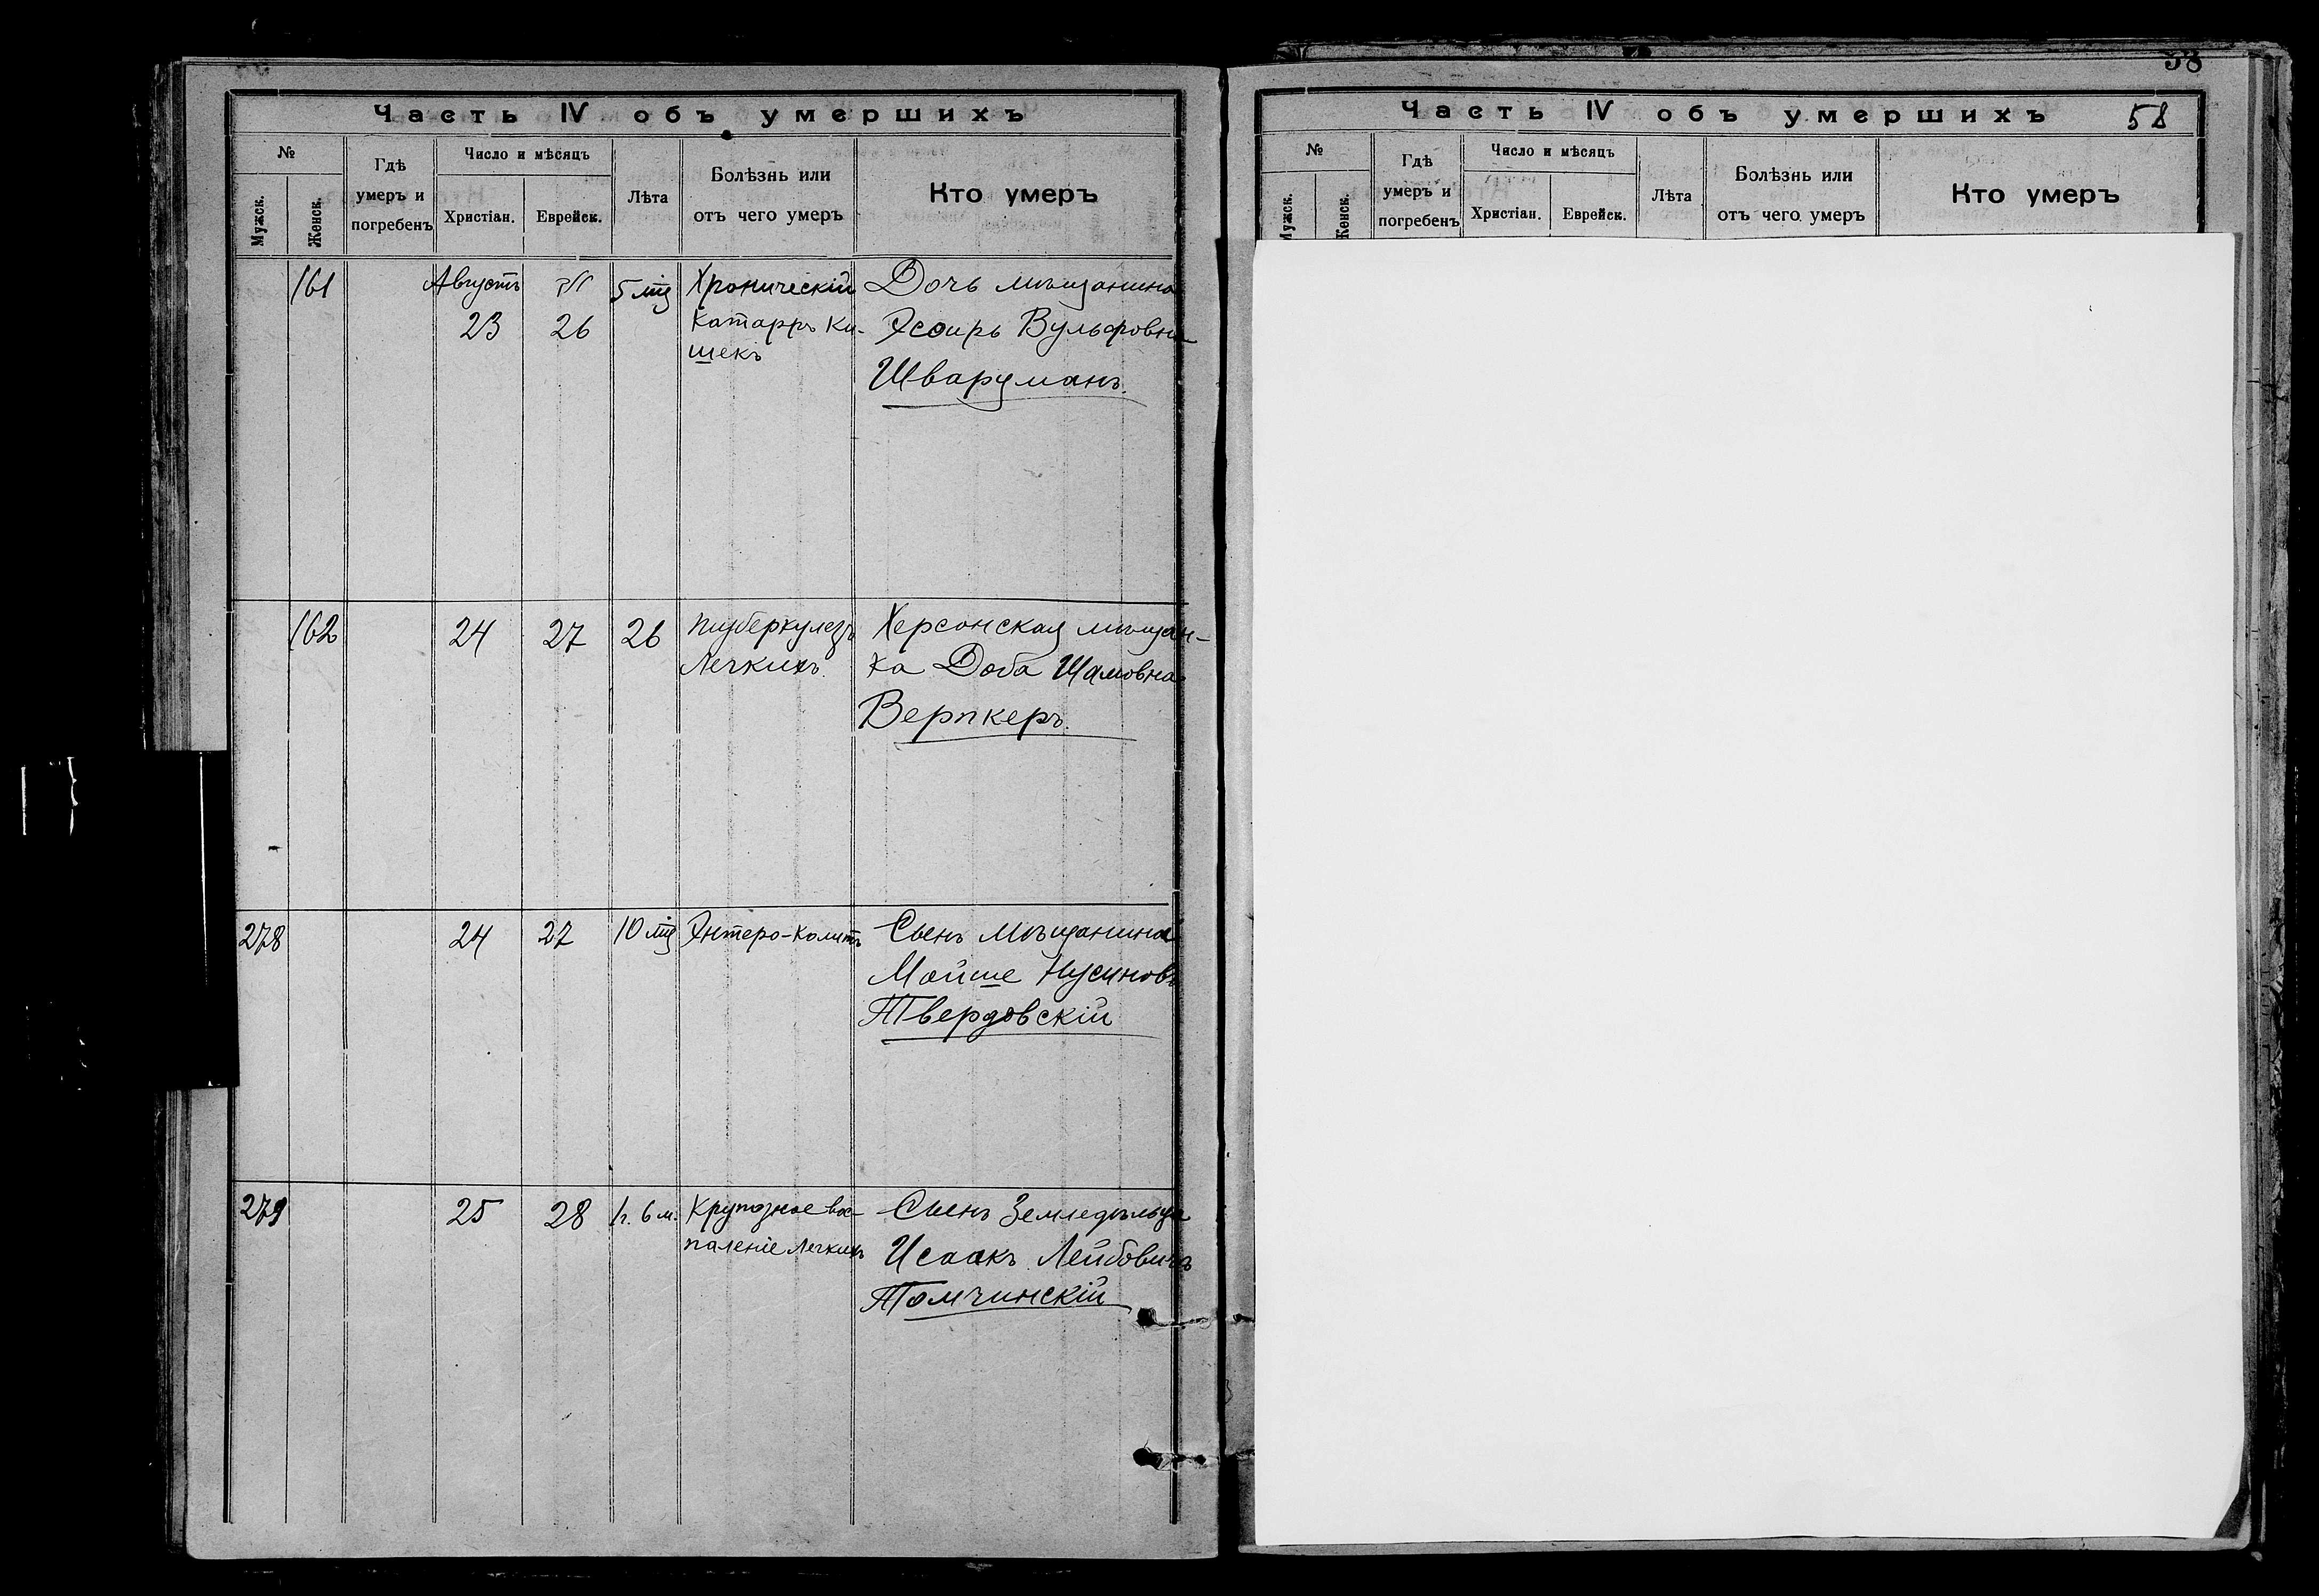 58
Часть IV объ умершихъ
№
Мужск.
Женск.
Гдѣ
умеръ и
погребенъ
Число и мѣсяцъ
Христіан.
Еврейск.
Лѣта
Болѣзнь или
отъ чего умеръ
Кто умеръ
161
Августъ
23
26
5 мц
Хроническій
Катарръ Ки-
шекъ
Дочь мѣщанина
Эсѳирь Вульфовна
Шварцманъ.
162
24
27
26
туберкулезъ
Легкихъ.
Херсонская мѣщан-
ка Доба Шамовна
Верпкеръ.
278
24
27
10 мц
Энтеро-Колитъ
Сынъ мѣщанина
Мойше Нусиновъ
Твердовскій
279
25
28
1г. 6 м.
Крупозное вос-
паленіе Легкихъ
Сынъ Земледѣльца
Исаакъ Лейбовичъ
Томчинскій
Часть IV объ умершихъ
58
№
Мужск.
Женск.
Гдѣ
умеръ и
погребенъ
Число и мѣсяцъ
Христіан.
Еврейск.
Лѣта
Болѣзнь или
отъ чего умеръ
Кто умеръ